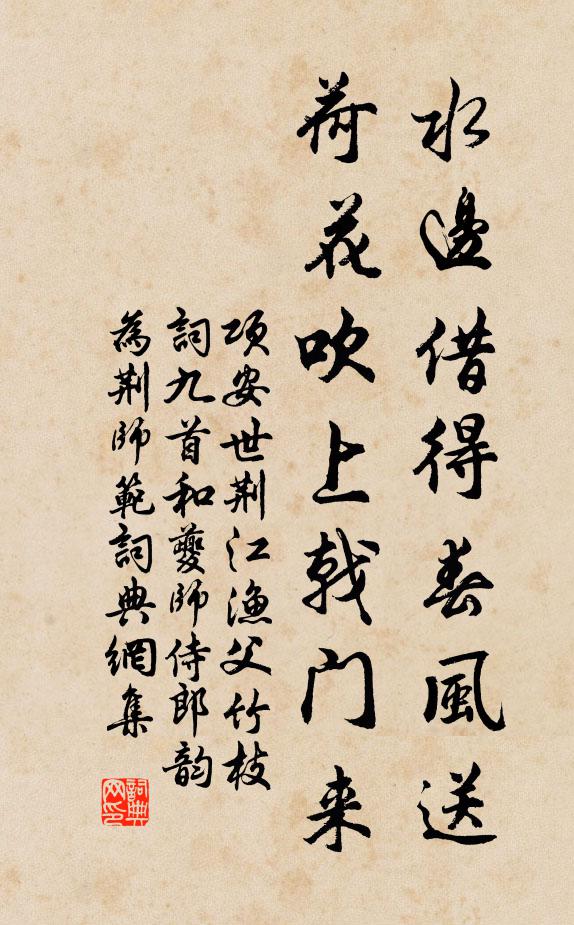 水邊借得春風送
荷花吹上戟门来
项安世荆江渔父竹枝
詞九首和夔师侍郎韵
為荆师範詞典網集
詞典网印